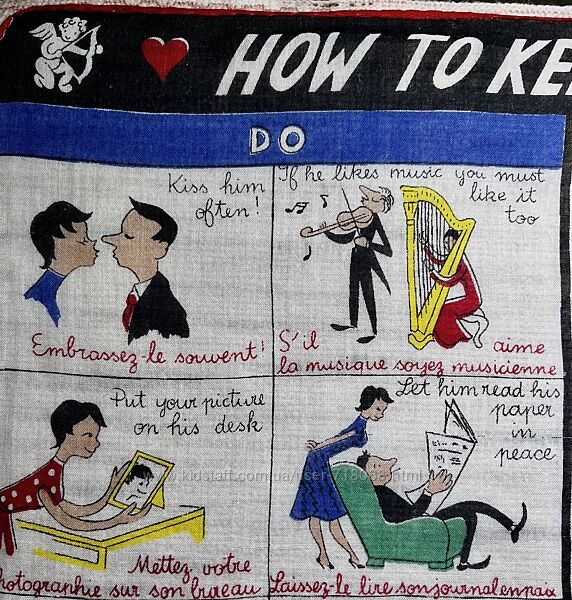 HOW TO KE
DO
Kiss him
often!
Embrassez-le souvent!
If he likes music you must
like it
too
S'il aime
la musique soyez musicienne
Put your picture
on his desk
Mettez votre
photographie sur son bureau
Let him read his
paper
in
peace
Laissez-le lire son journal en paix